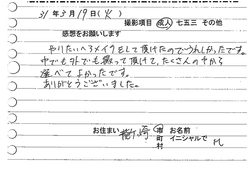 31年3月19日(火)
撮影項目 成人 七五三 その他
感想をお願いします
やりたいヘアメイクをして頂けたのでうれしかったです。
中でも外でも撮って頂けて、たくさんの中から
選べてよかったです。
ありがとうございました。
お住まい 崎 市町村 お名前 イニシャルで M